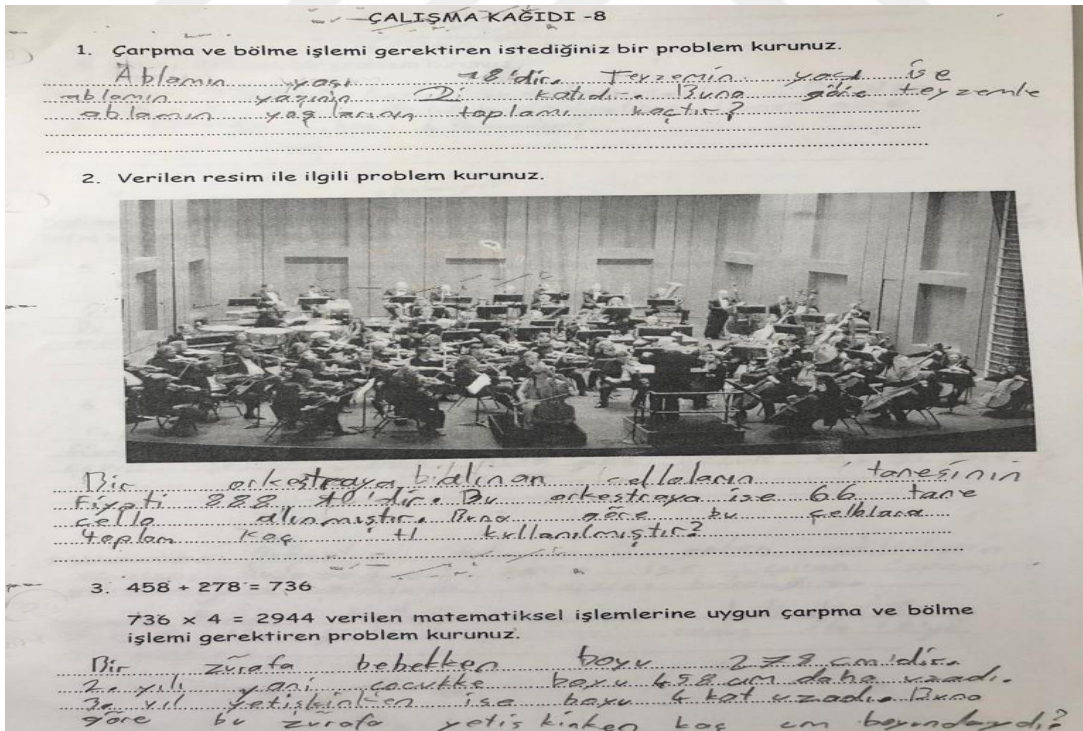 ÇALIŞMA KAĞIDI -8
1. Çarpma ve bölme işlemi gerektiren istediğiniz bir problem kurunuz.
Ablamın yaşı 18'dir. Teyzemin yaşı ise
ablamın yaşının 2 katıdır. Buna göre teyzemle
ablamın yaşlarının toplamı kaçtır?
2. Verilen resim ile ilgili problem kurunuz.
Bir orkestraya alınan celloların tanesinin
Fiyatı 888 tl'dir. Bu orkestraya ise 66 tane
cello alınmıştır. Buna göre bu çellolara
toplam kaç tl kullanılmıştır?
3. 458 + 278 = 736
736 x 4 = 2944 verilen matematiksel işlemlerine uygun çarpma ve bölme
işlemi gerektiren problem kurunuz.
Bir zürafa bebekken boyu 278 cm'dir.
2. yılı yani çocukke boyu 458 cm daha uzadı.
3. yıl yetişkinken ise boyu 4 kat uzadı. Buna
göre bu zürafa yetişkinken kaç cm boyundaydı?